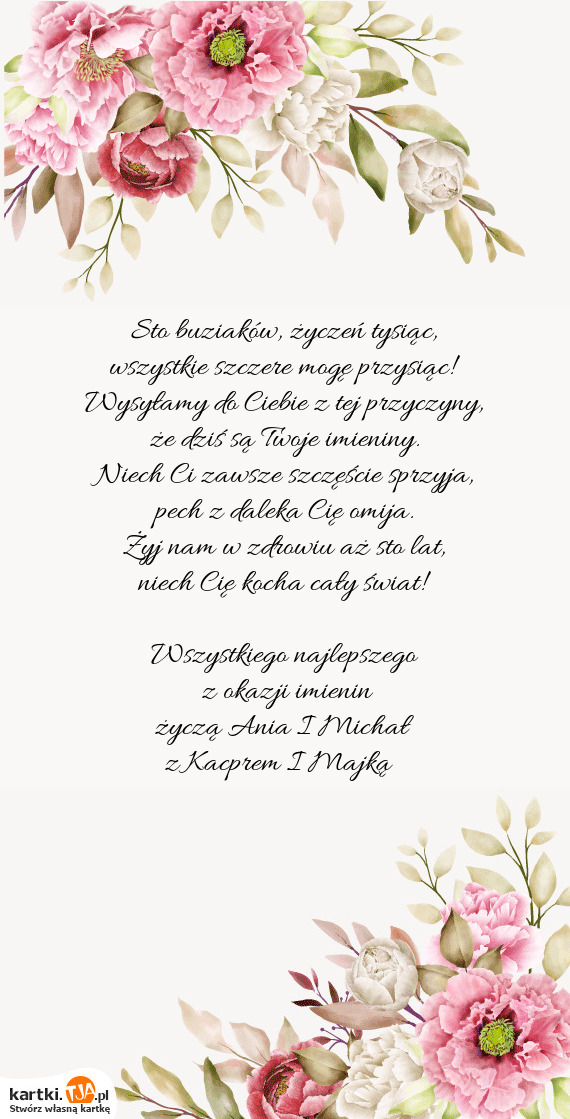 Sto buziaków, życzeń tysiąc,
wszystkie szczere mogę przysiąc!
Wysyłamy do Ciebie z tej przyczyny,
że dziś są Twoje imieniny.
Niech Ci zawsze szczęście sprzyja,
pech z daleka Cię omija.
Żyj nam w zdrowiu aż sto lat,
niech Cię kocha cały świat!
Wszystkiego najlepszego
z okazji imienin
życzą Ania I Michał
z Kacprem I Majką
kartki.TJA.pl
Stwórz własną kartkę